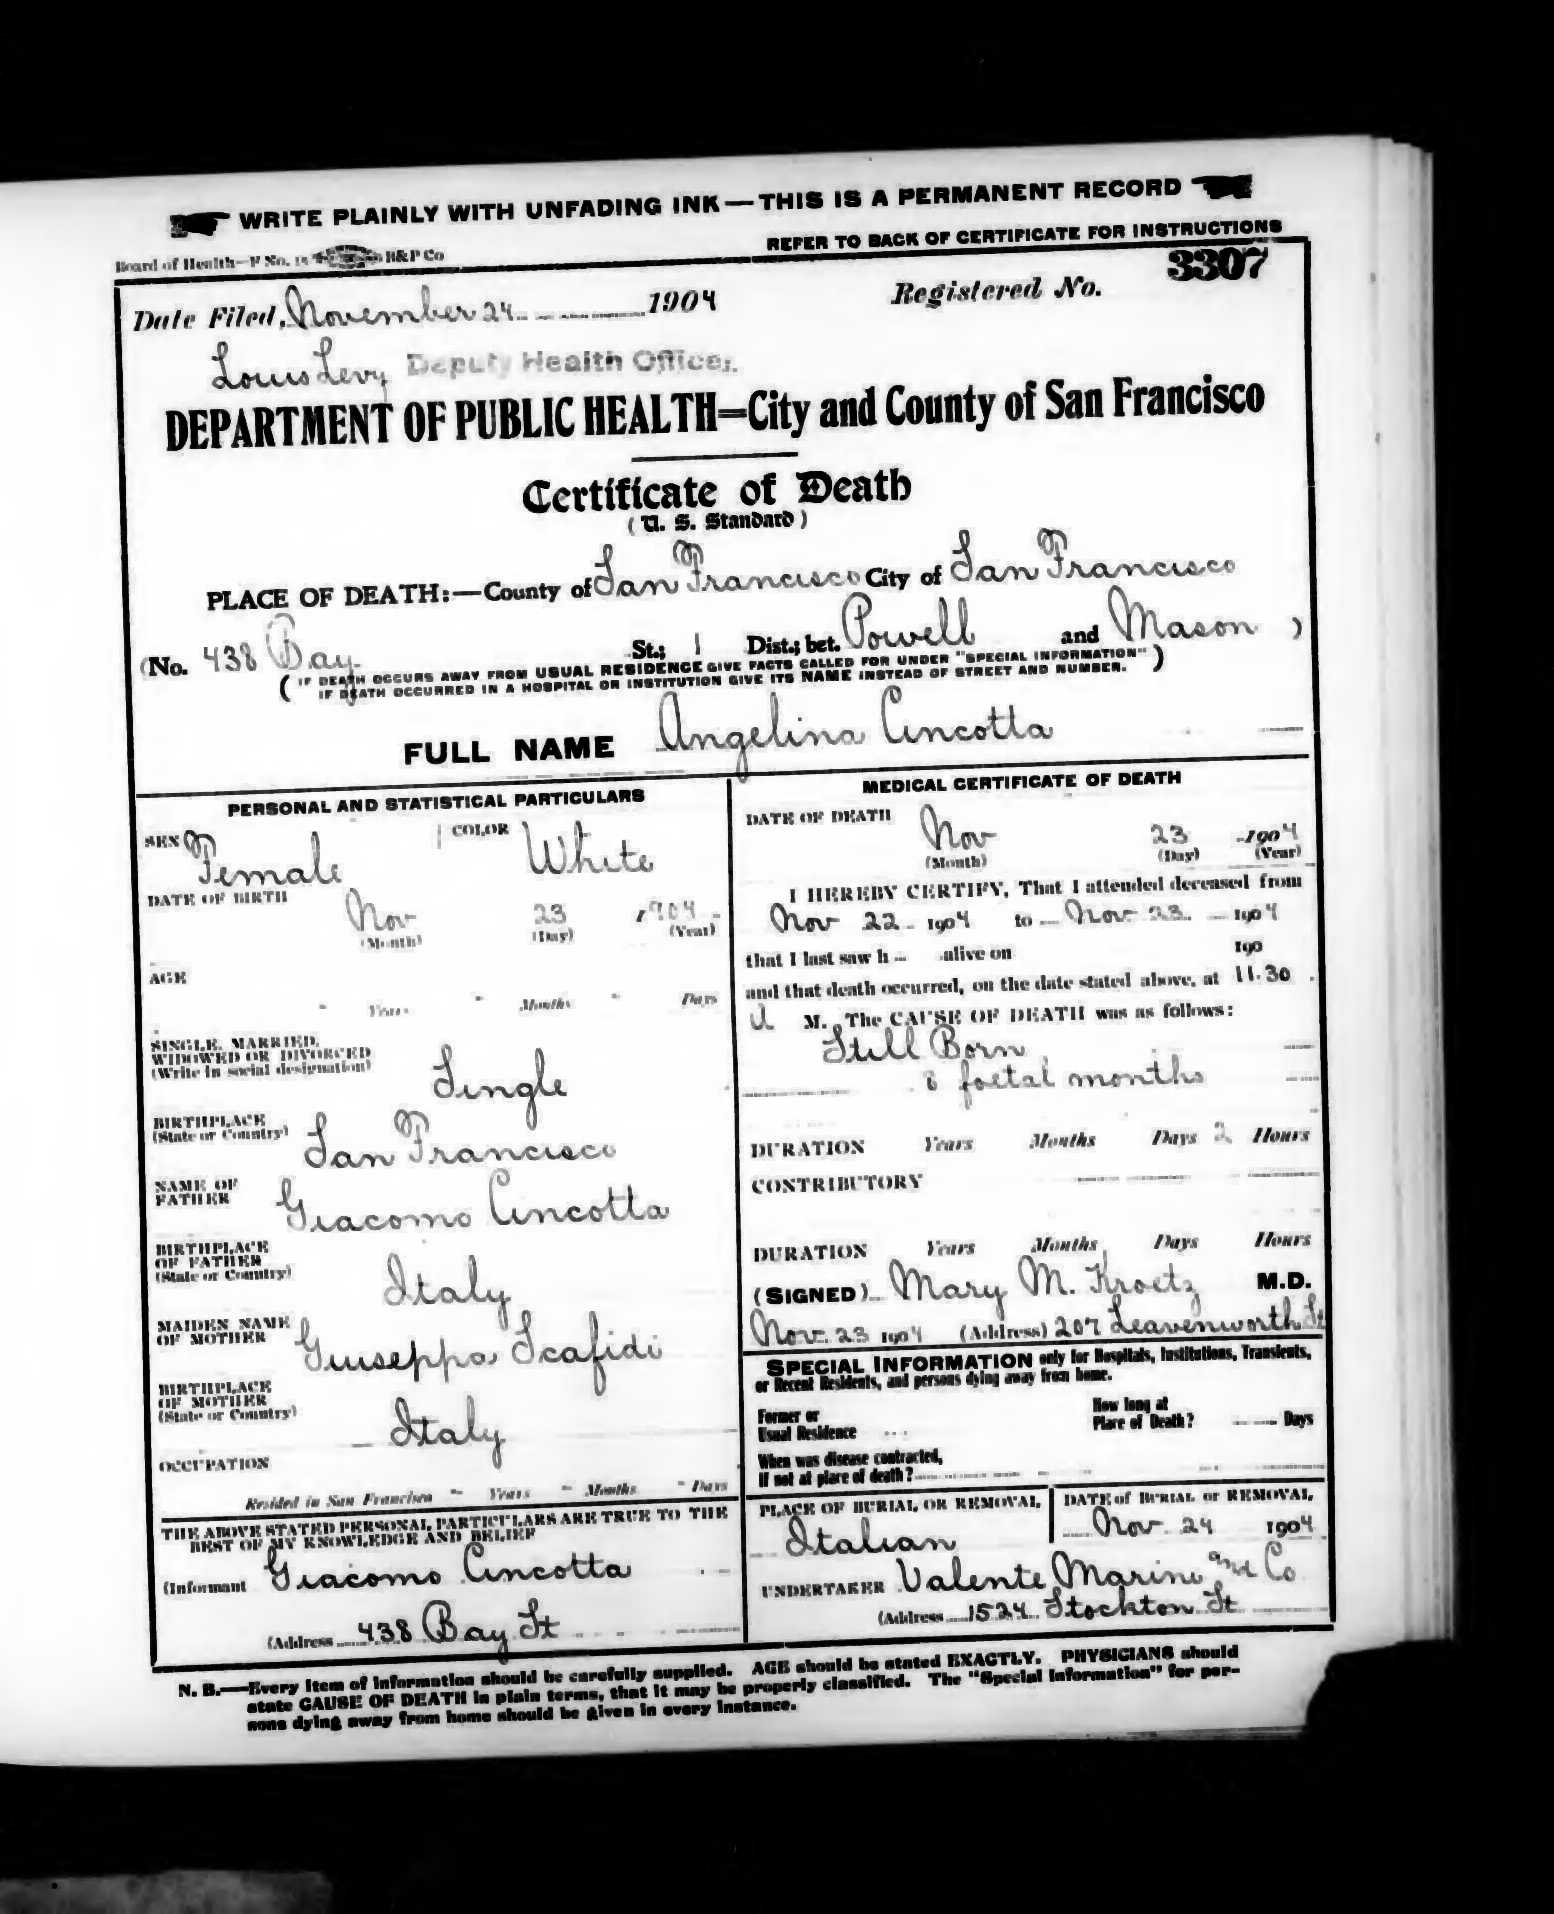 WRITE PLAINLY WITH UNFADING INK—THIS IS A PERMANENT RECORD
Board of Health—F No. H&P Co
REFER TO BACK OF CERTIFICATE FOR INSTRUCTIONS
Date Filed, November 24 1904 Registered No. 3307
Louis Levy Deputy Health Officer.
DEPARTMENT OF PUBLIC HEALTH—City and County of San Francisco
Certificate of Death
(U. S. Standard)
PLACE OF DEATH:—County of San Francisco City of San Francisco
(No. 438 Bay St.; 1 Dist.; bet. Powell and Mason )
( IF DEATH OCCURS AWAY FROM USUAL RESIDENCE GIVE FACTS CALLED FOR UNDER "SPECIAL INFORMATION" )
IF DEATH OCCURRED IN A HOSPITAL OR INSTITUTION GIVE ITS NAME INSTEAD OF STREET AND NUMBER.
FULL NAME Angelina Cincotta
PERSONAL AND STATISTICAL PARTICULARS
SEX Female COLOR White
DATE OF BIRTH Nov 23 1904
(Month) (Day) (Year)
AGE
" Years " Months " Days
SINGLE, MARRIED,
WIDOWED OR DIVORCED
(Write in social designation) Single
BIRTHPLACE
(State or Country) San Francisco
NAME OF
FATHER Giacomo Cincotta
BIRTHPLACE
OF FATHER
(State or Country) Italy
MAIDEN NAME
OF MOTHER Giuseppa Scafidi
BIRTHPLACE
OF MOTHER
(State or Country) Italy
OCCUPATION
Resided in San Francisco " Years " Months " Days
THE ABOVE STATED PERSONAL PARTICULARS ARE TRUE TO THE
BEST OF MY KNOWLEDGE AND BELIEF
(Informant Giacomo Cincotta
(Address 438 Bay St
MEDICAL CERTIFICATE OF DEATH
DATE OF DEATH Nov 23 1904
(Month) (Day) (Year)
I HEREBY CERTIFY, That I attended deceased from
Nov 22 1904 to Nov 23 1904
that I last saw h alive on 190
and that death occurred, on the date stated above, at 11.30
A M. The CAUSE OF DEATH was as follows:
Still Born
8 foetal months
DURATION Years Months Days 2 Hours
CONTRIBUTORY
DURATION Years Months Days Hours
(SIGNED) Mary M. Kroetz M.D.
Nov. 23 1904 (Address) 207 Leavenworth St
SPECIAL INFORMATION only for Hospitals, Institutions, Transients,
or Recent Residents, and persons dying away from home.
Former or
Usual Residence
How long at
Place of Death? Days
When was disease contracted,
If not at place of death?
PLACE OF BURIAL OR REMOVAL
Italian
DATE of BURIAL or REMOVAL,
Nov 24 1904
UNDERTAKER Valente Marini and Co
(Address 1524 Stockton St
N. B.—Every item of information should be carefully supplied. AGE should be stated EXACTLY. PHYSICIANS should
state CAUSE OF DEATH in plain terms, that it may be properly classified. The "Special Information" for per-
sons dying away from home should be given in every instance.